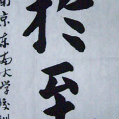 於至
南京东南大学校训